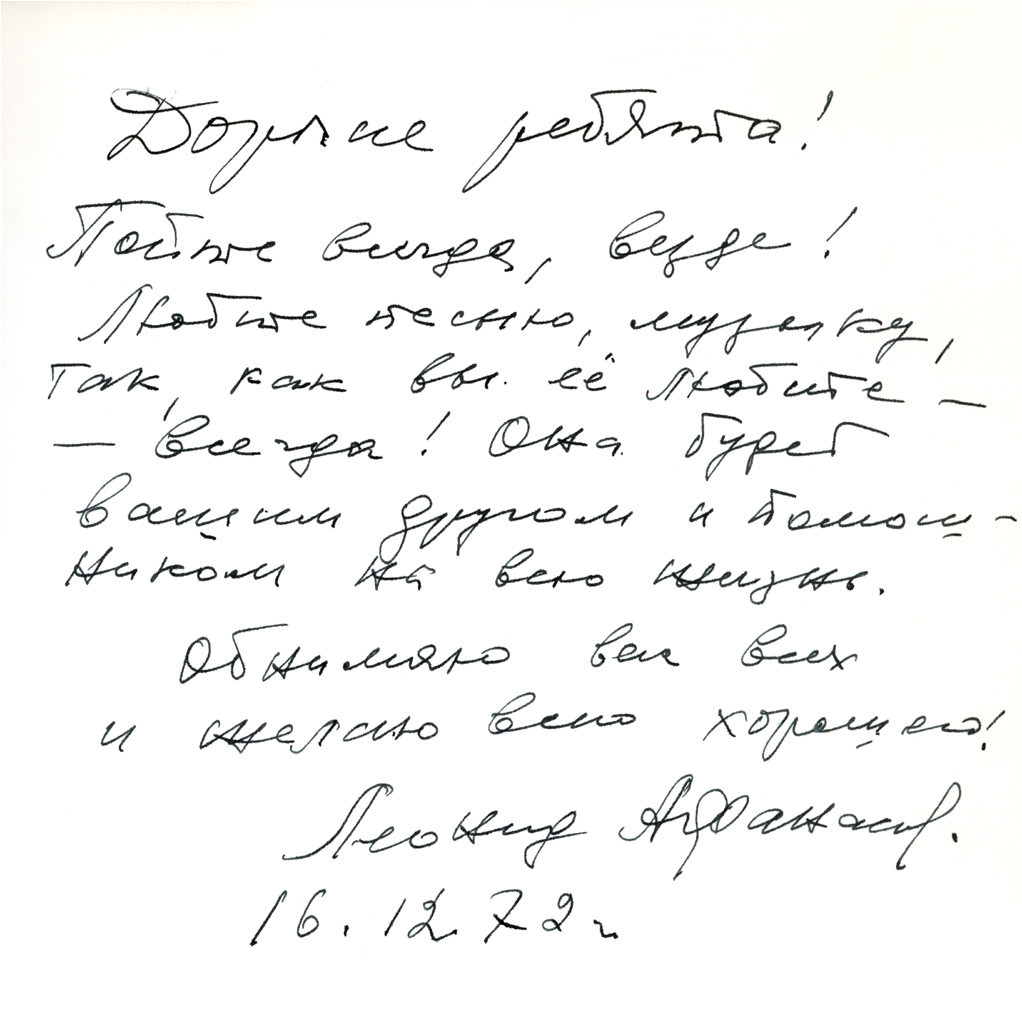 Дорогие ребята!
Пойте всегда, везде!
Любите песню, музыку,
так, как вы её любите —
— всегда! Она будет
вашим другом и помощ-
ником на всю жизнь.
Обнимаю вас всех
и желаю всего хорошего!
Леонид Афанасьев.
16.12.72 г.